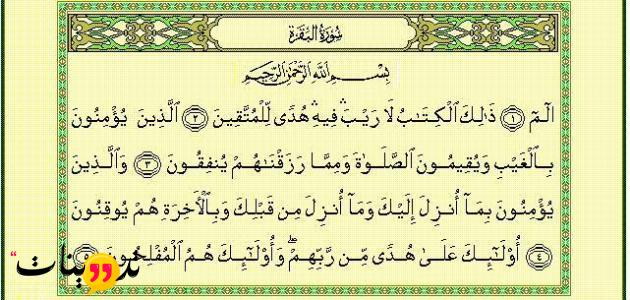 سُورَةُ الْبَقَرَةِ
بِسْمِ اللَّهِ الرَّحْمَٰنِ الرَّحِيمِ
الٓمٓ ۝١ ذَٰلِكَ الْكِتَابُ لَا رَيْبَ ۛ فِيهِ ۛ هُدًى لِّلْمُتَّقِينَ ۝٢ الَّذِينَ يُؤْمِنُونَ
بِالْغَيْبِ وَيُقِيمُونَ الصَّلَوٰةَ وَمِمَّا رَزَقْنَاهُمْ يُنفِقُونَ ۝٣ وَالَّذِينَ
يُؤْمِنُونَ بِمَآ أُنزِلَ إِلَيْكَ وَمَآ أُنزِلَ مِن قَبْلِكَ وَبِالْأَخِرَةِ هُمْ يُوقِنُونَ
۝٤ أُوْلَـٰٓئِكَ عَلَىٰ هُدًى مِّن رَّبِّهِمْ ۖ وَأُوْلَـٰٓئِكَ هُمُ الْمُفْلِحُونَ ۝٥
تدوينات